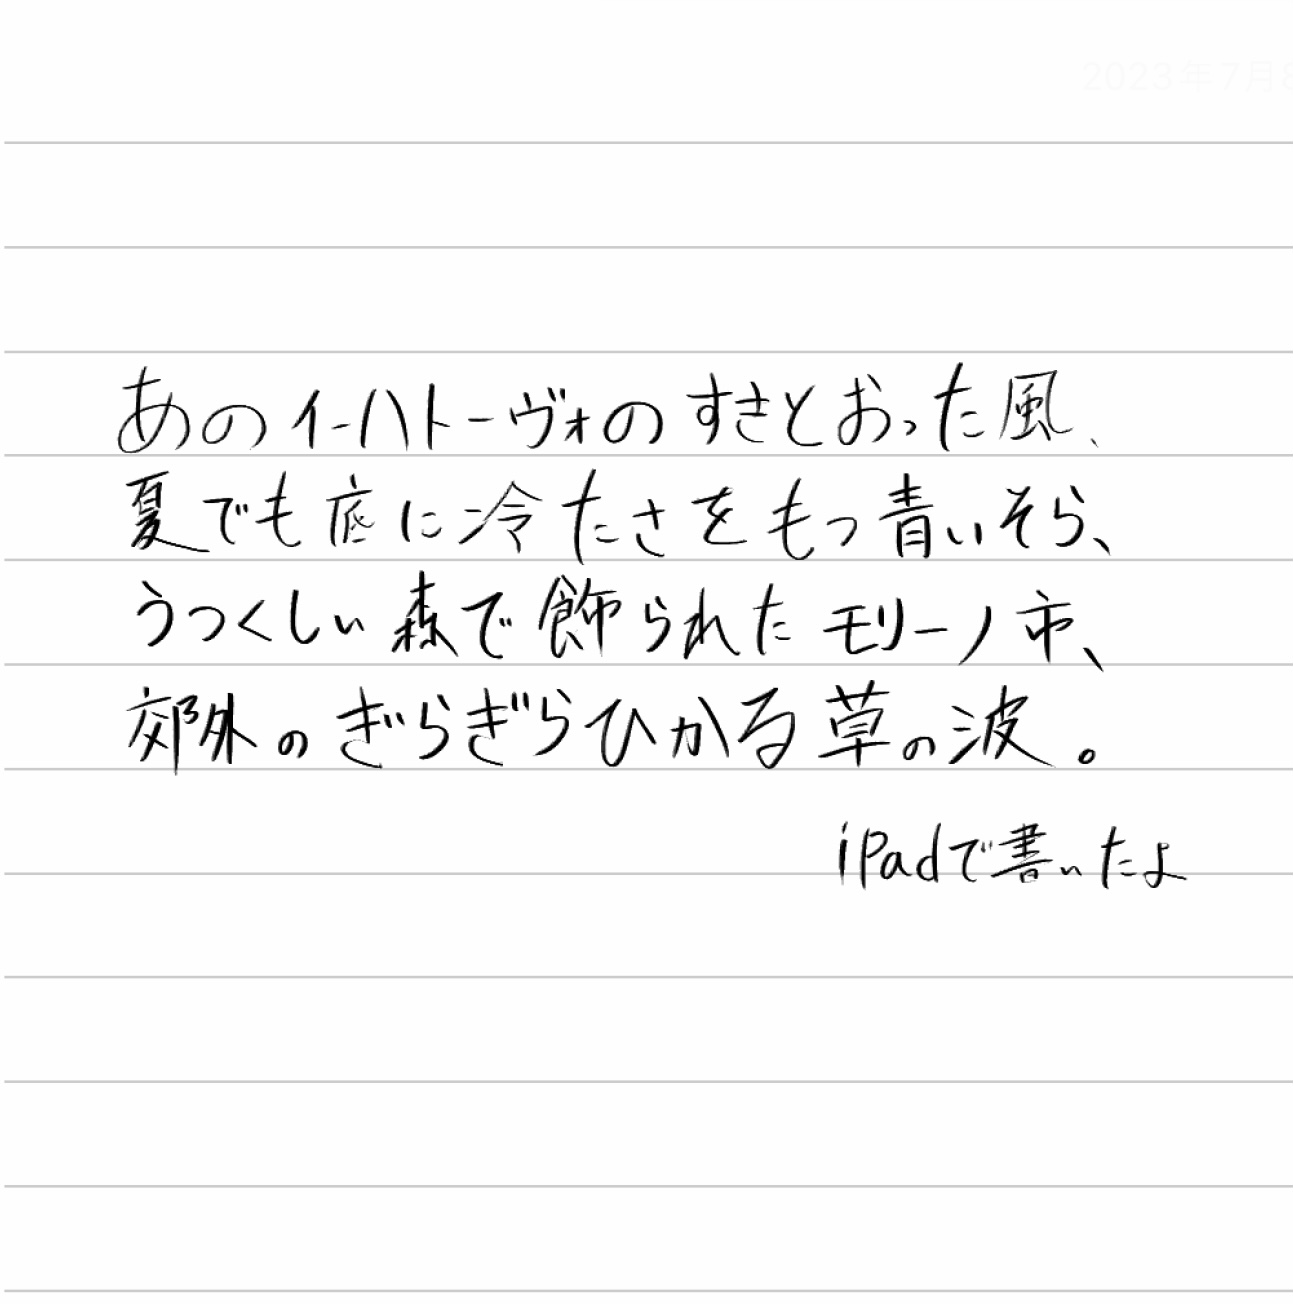 2023年7月8
あのイーハトーヴォのすきとおった風、
夏でも底に冷たさをもつ青いそら、
うつくしい森で飾られたモリーノ市、
郊外のぎらぎらひかる草の波。
iPadで書いたよ